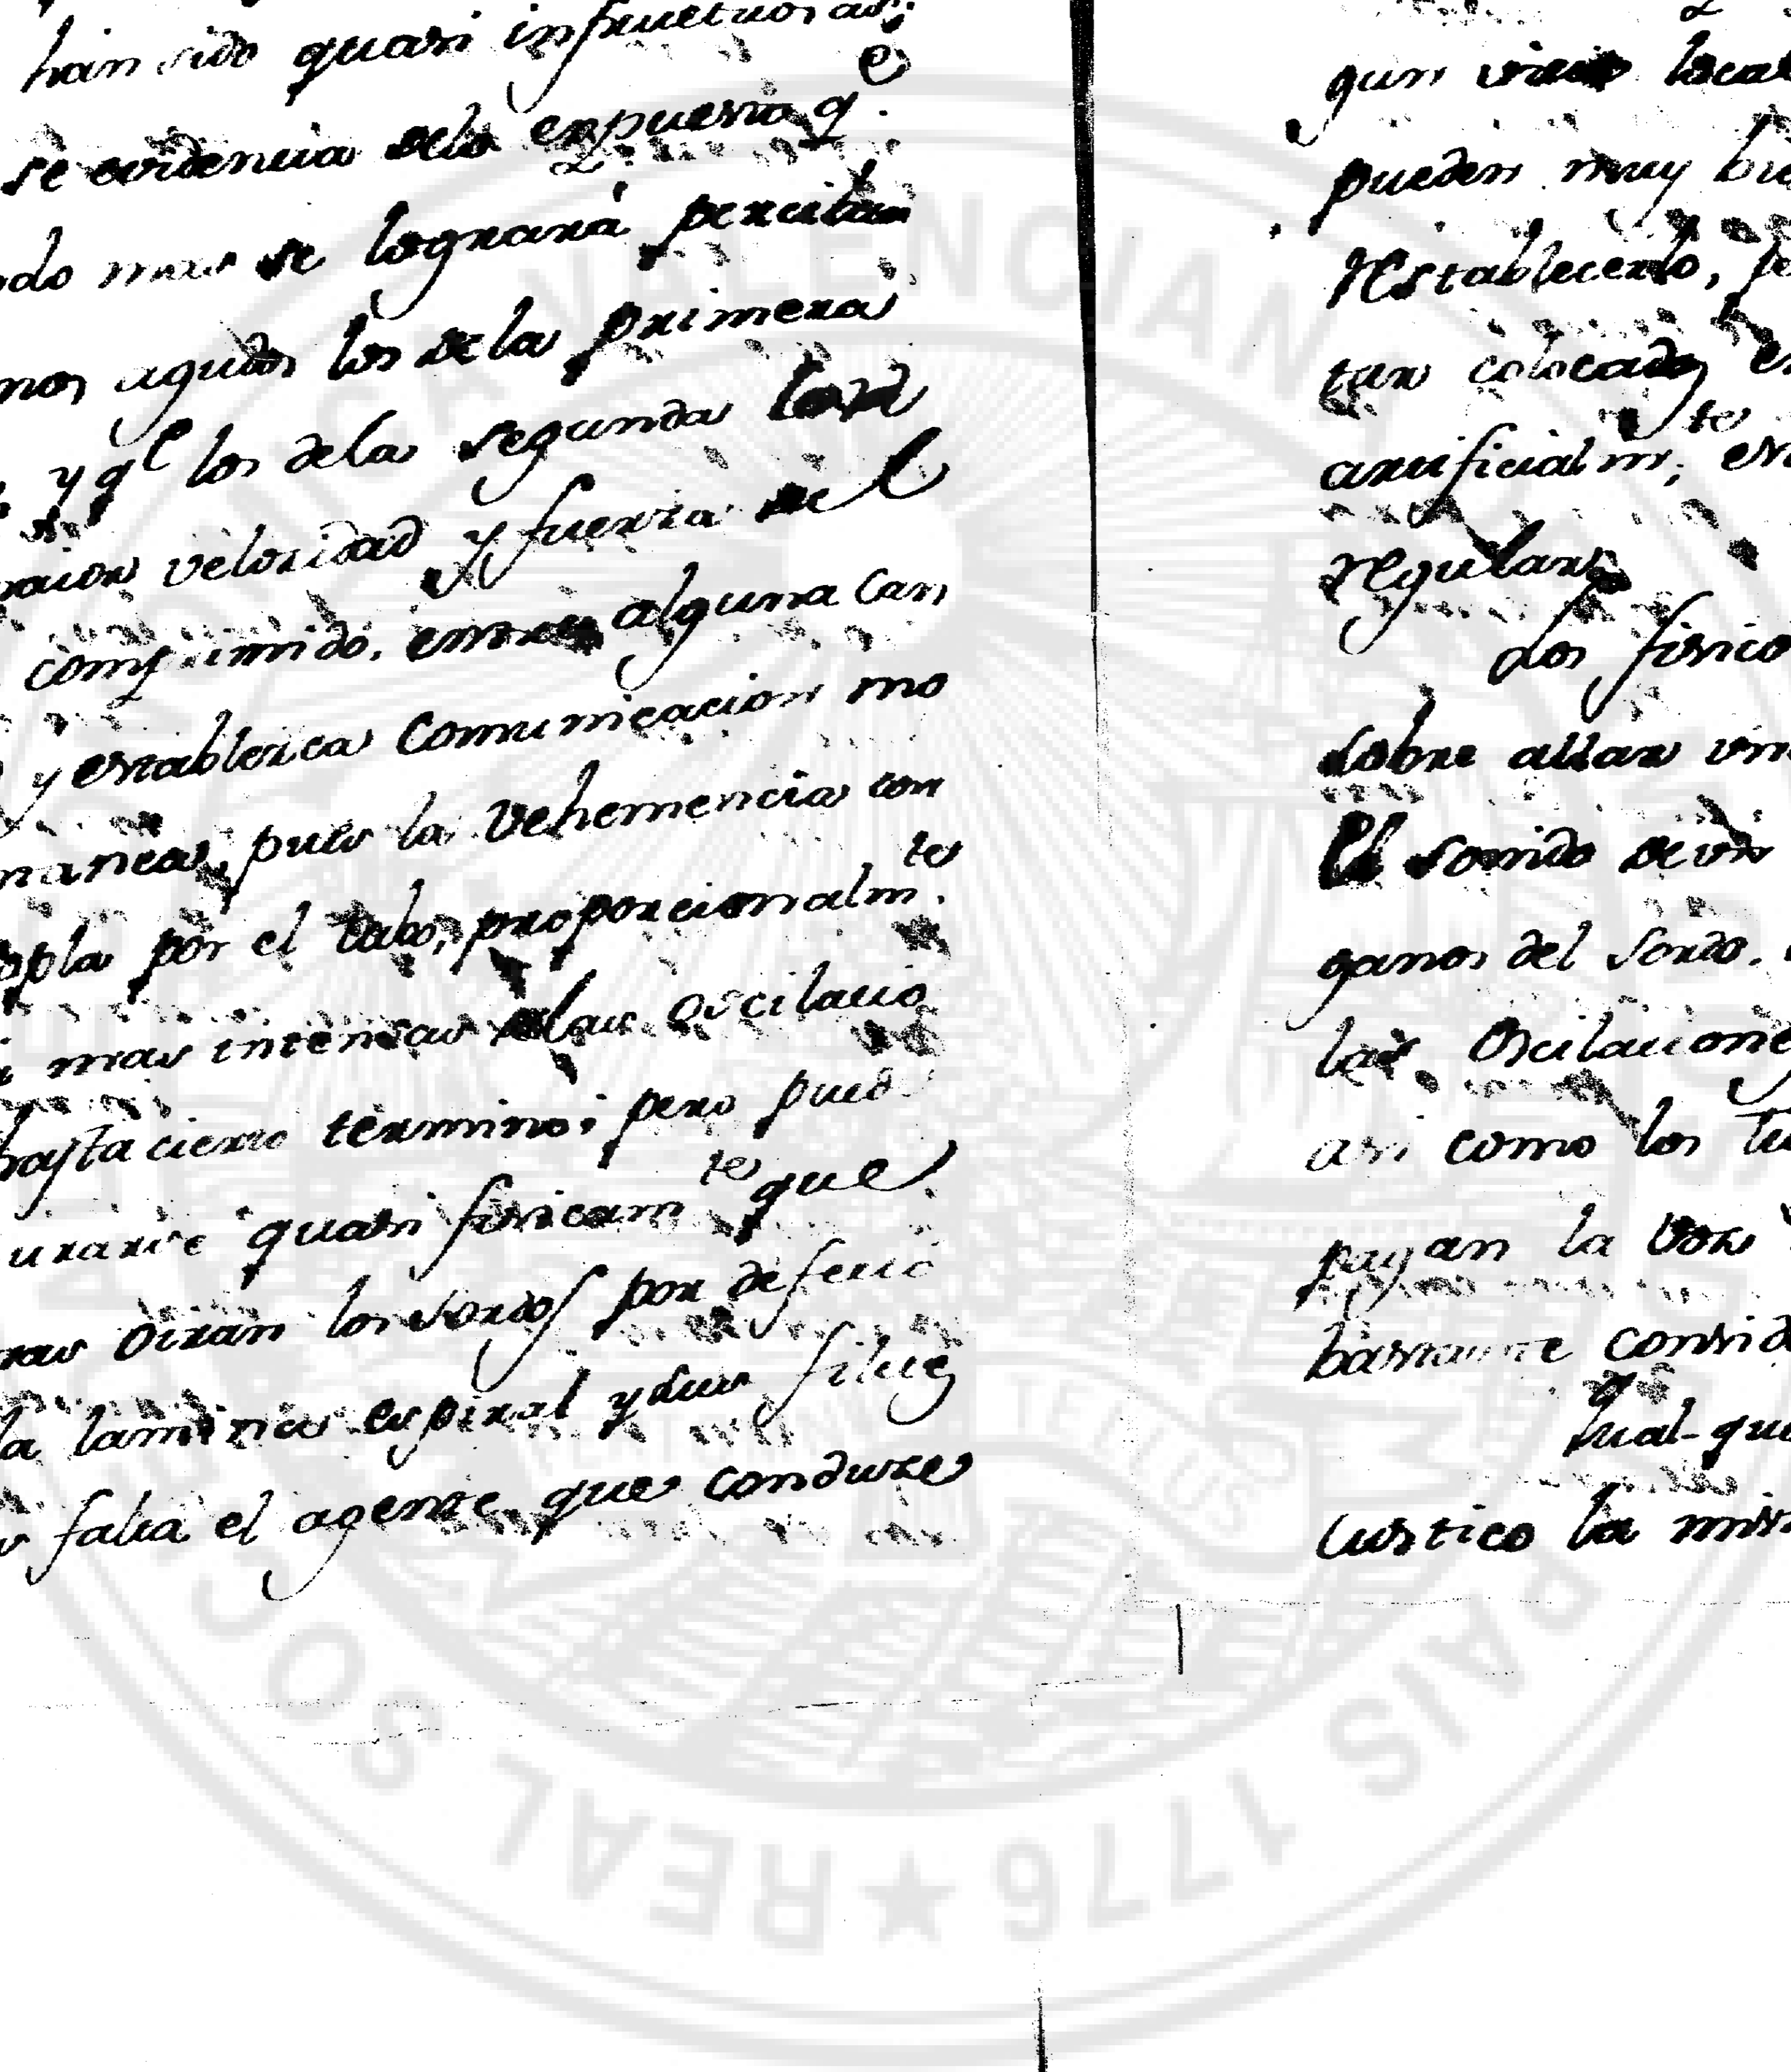 han sido quasi infructuosas;
se evidencia delo expuesto q.e
do mas se lograrà percitan
nos agudos los dela primera
y q.e los dela segunda con
velosidad y fuerza de el
comprimido. entre alguna can
y establezca Comunicacion mo
nanea, pues la vehemencia con
opla por el tubo, proporcionalm.te
mas intensas las oscilacio
hasta cierto termino; pero pued
urarse quasi fisicam.te que
oiran los sordos por defecto
la lamina espiral y sus filue
falta el agente que conduze
gun vicio local
pueden muy bie
restablecerlo, pe
tar colocado en
artificialm.te, en
regular
Los fisico
sobre allar un
El sonido de un
ganos del sordo.
las Oscilacione
asi como los tu
pagan la voz
bastante consid
qual-que
custico la mis
REAL SOC
PAIS 1776
VALENCIAN